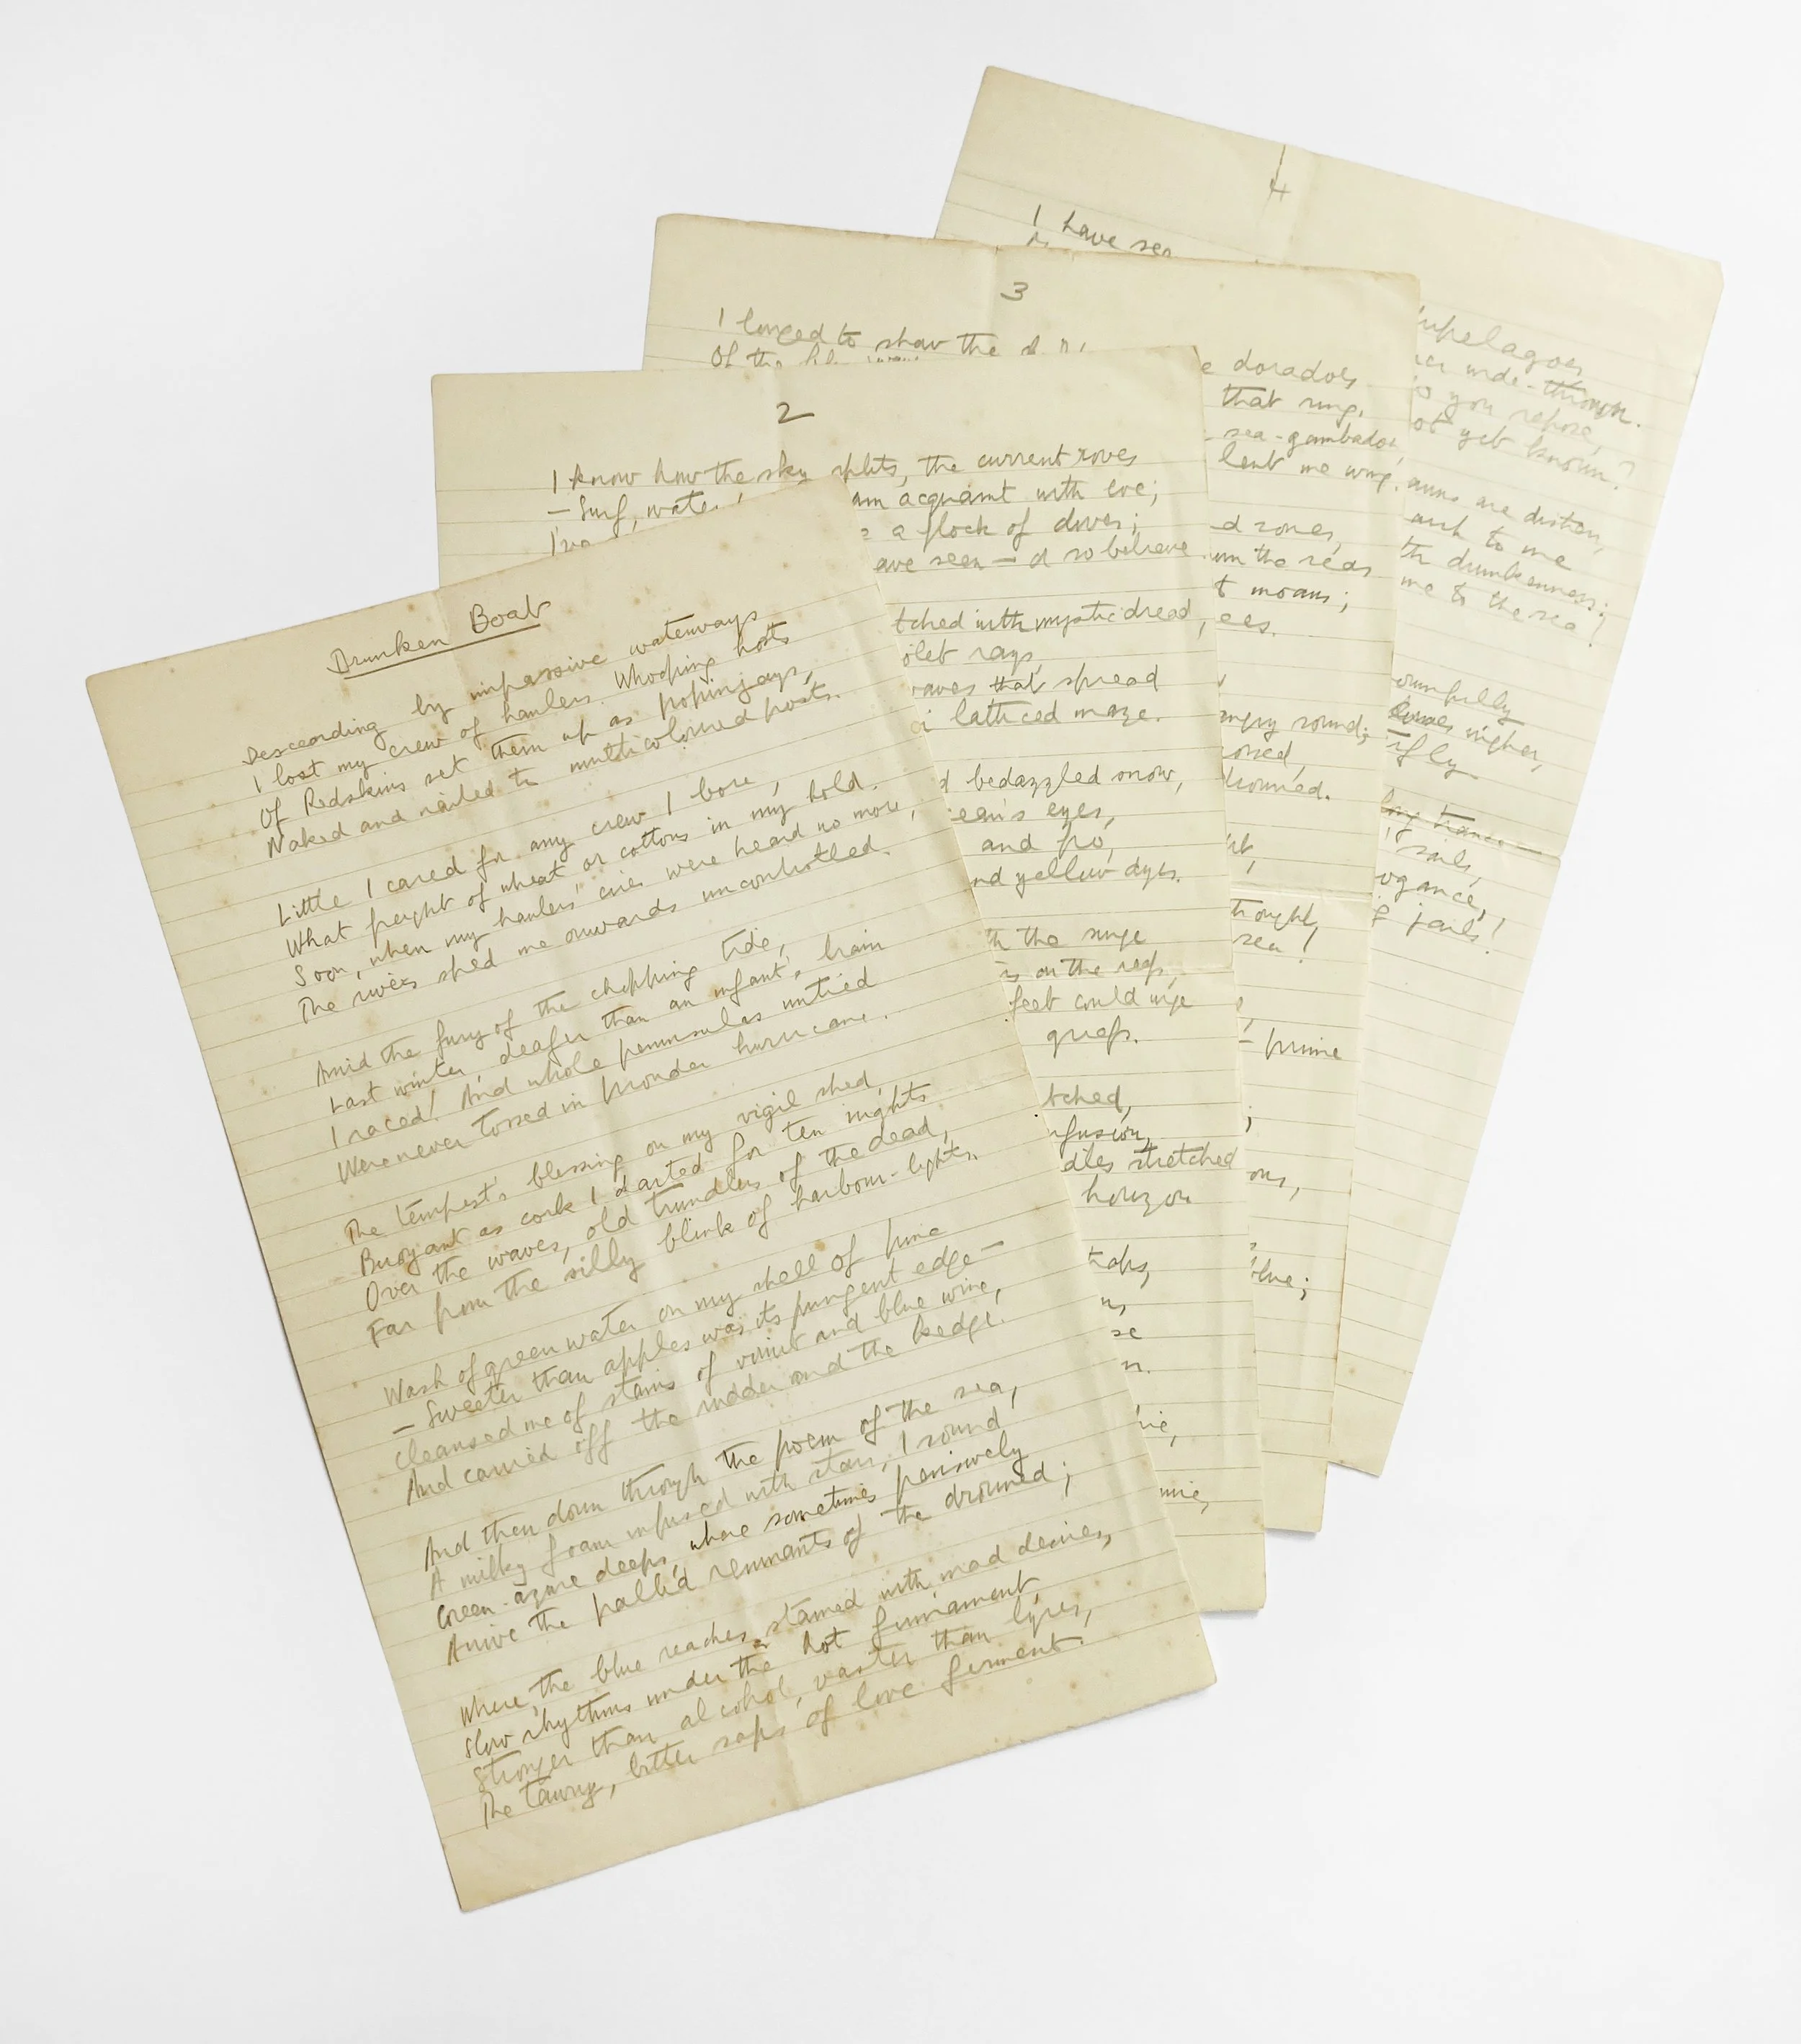 Drunken Boat
Descending by impassive waterways
I lost my crew of haulers. Whooping hosts
Of Redskins set them up as popinjays,
Naked and nailed to multicoloured posts.
Little I cared for any crew I bore,
What freight of wheat or cottons in my hold.
Soon, when my haulers' cries were heard no more,
The rivers sped me onwards uncontrolled.
Amid the fury of the chopping tide,
Last winter, deafer than an infant's brain
I raced! And whole peninsulas untied
Were never tossed in prouder hurricane.
The tempest's blessing on my vigil shed,
Buoyant as cork I darted for ten nights
Over the waves, old trundlers of the dead,
Far from the silly blink of harbour-lights.
Wash of green water on my shell of pine
— Sweeter than apples was its pungent edge —
Cleansed me of stains of vomit and blue wine,
And carried off the rudder and the kedge.
And then down through the poem of the sea,
A milky foam infused with stars, I sound
Green-azure deeps, where sometimes pensively
Arrive the pallid remnants of the drowned;
Where, the blue reaches stained with mad desires,
Slow rhythms under the hot firmament,
Stronger than alcohol, vaster than lyres,
The tawny, bitter saps of love ferment.
2
I know how the sky splits, the current roves
— Surf, water
am acquaint with eve;
a flock of doves;
ave seen — d so believe
tched with mystic dread,
olet rays,
that spread
latticed maze.
d bedazzled snow,
ean's eyes,
and fro,
nd yellow dyes.
th the surge
on the reefs,
feet could urge
griefs.
tched,
nfusion,
dles stretched
horizon
se
n.
3
I longed to show the
Of the
e dorados
that sing.
sea-gambados,
lent me wing.
d zones,
the seas
t moans;
ees.
angry sound;
drowned.
thought,
sea!
— prime
ons,
blue;
4
I have see
hipelagoes
do you repose,
ot yet known?
awns are distress,
to me
th drunkenness:
me to the sea!
ournfully
higher,
long trance —
sails,
ogance,
f jails!